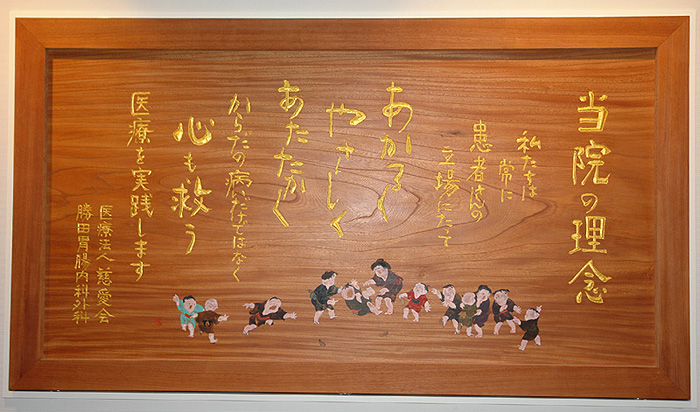 当院の理念
私たちは
常に
患者さまの
立場にたって
あかるく
やさしく
あたたかく
からだの病だけではなく
心も救う
医療を実践します
医療法人 慈愛会
勝田胃腸内科外科